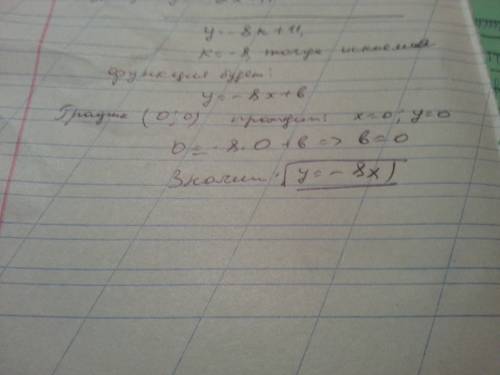 y=-8x+11,
k=-8 тогда искомая
функция будет:
y=-8x+b
График (0;0) проходит: x=0; y=0
0=-8·0+b=>b=0
Значит: y=-8x